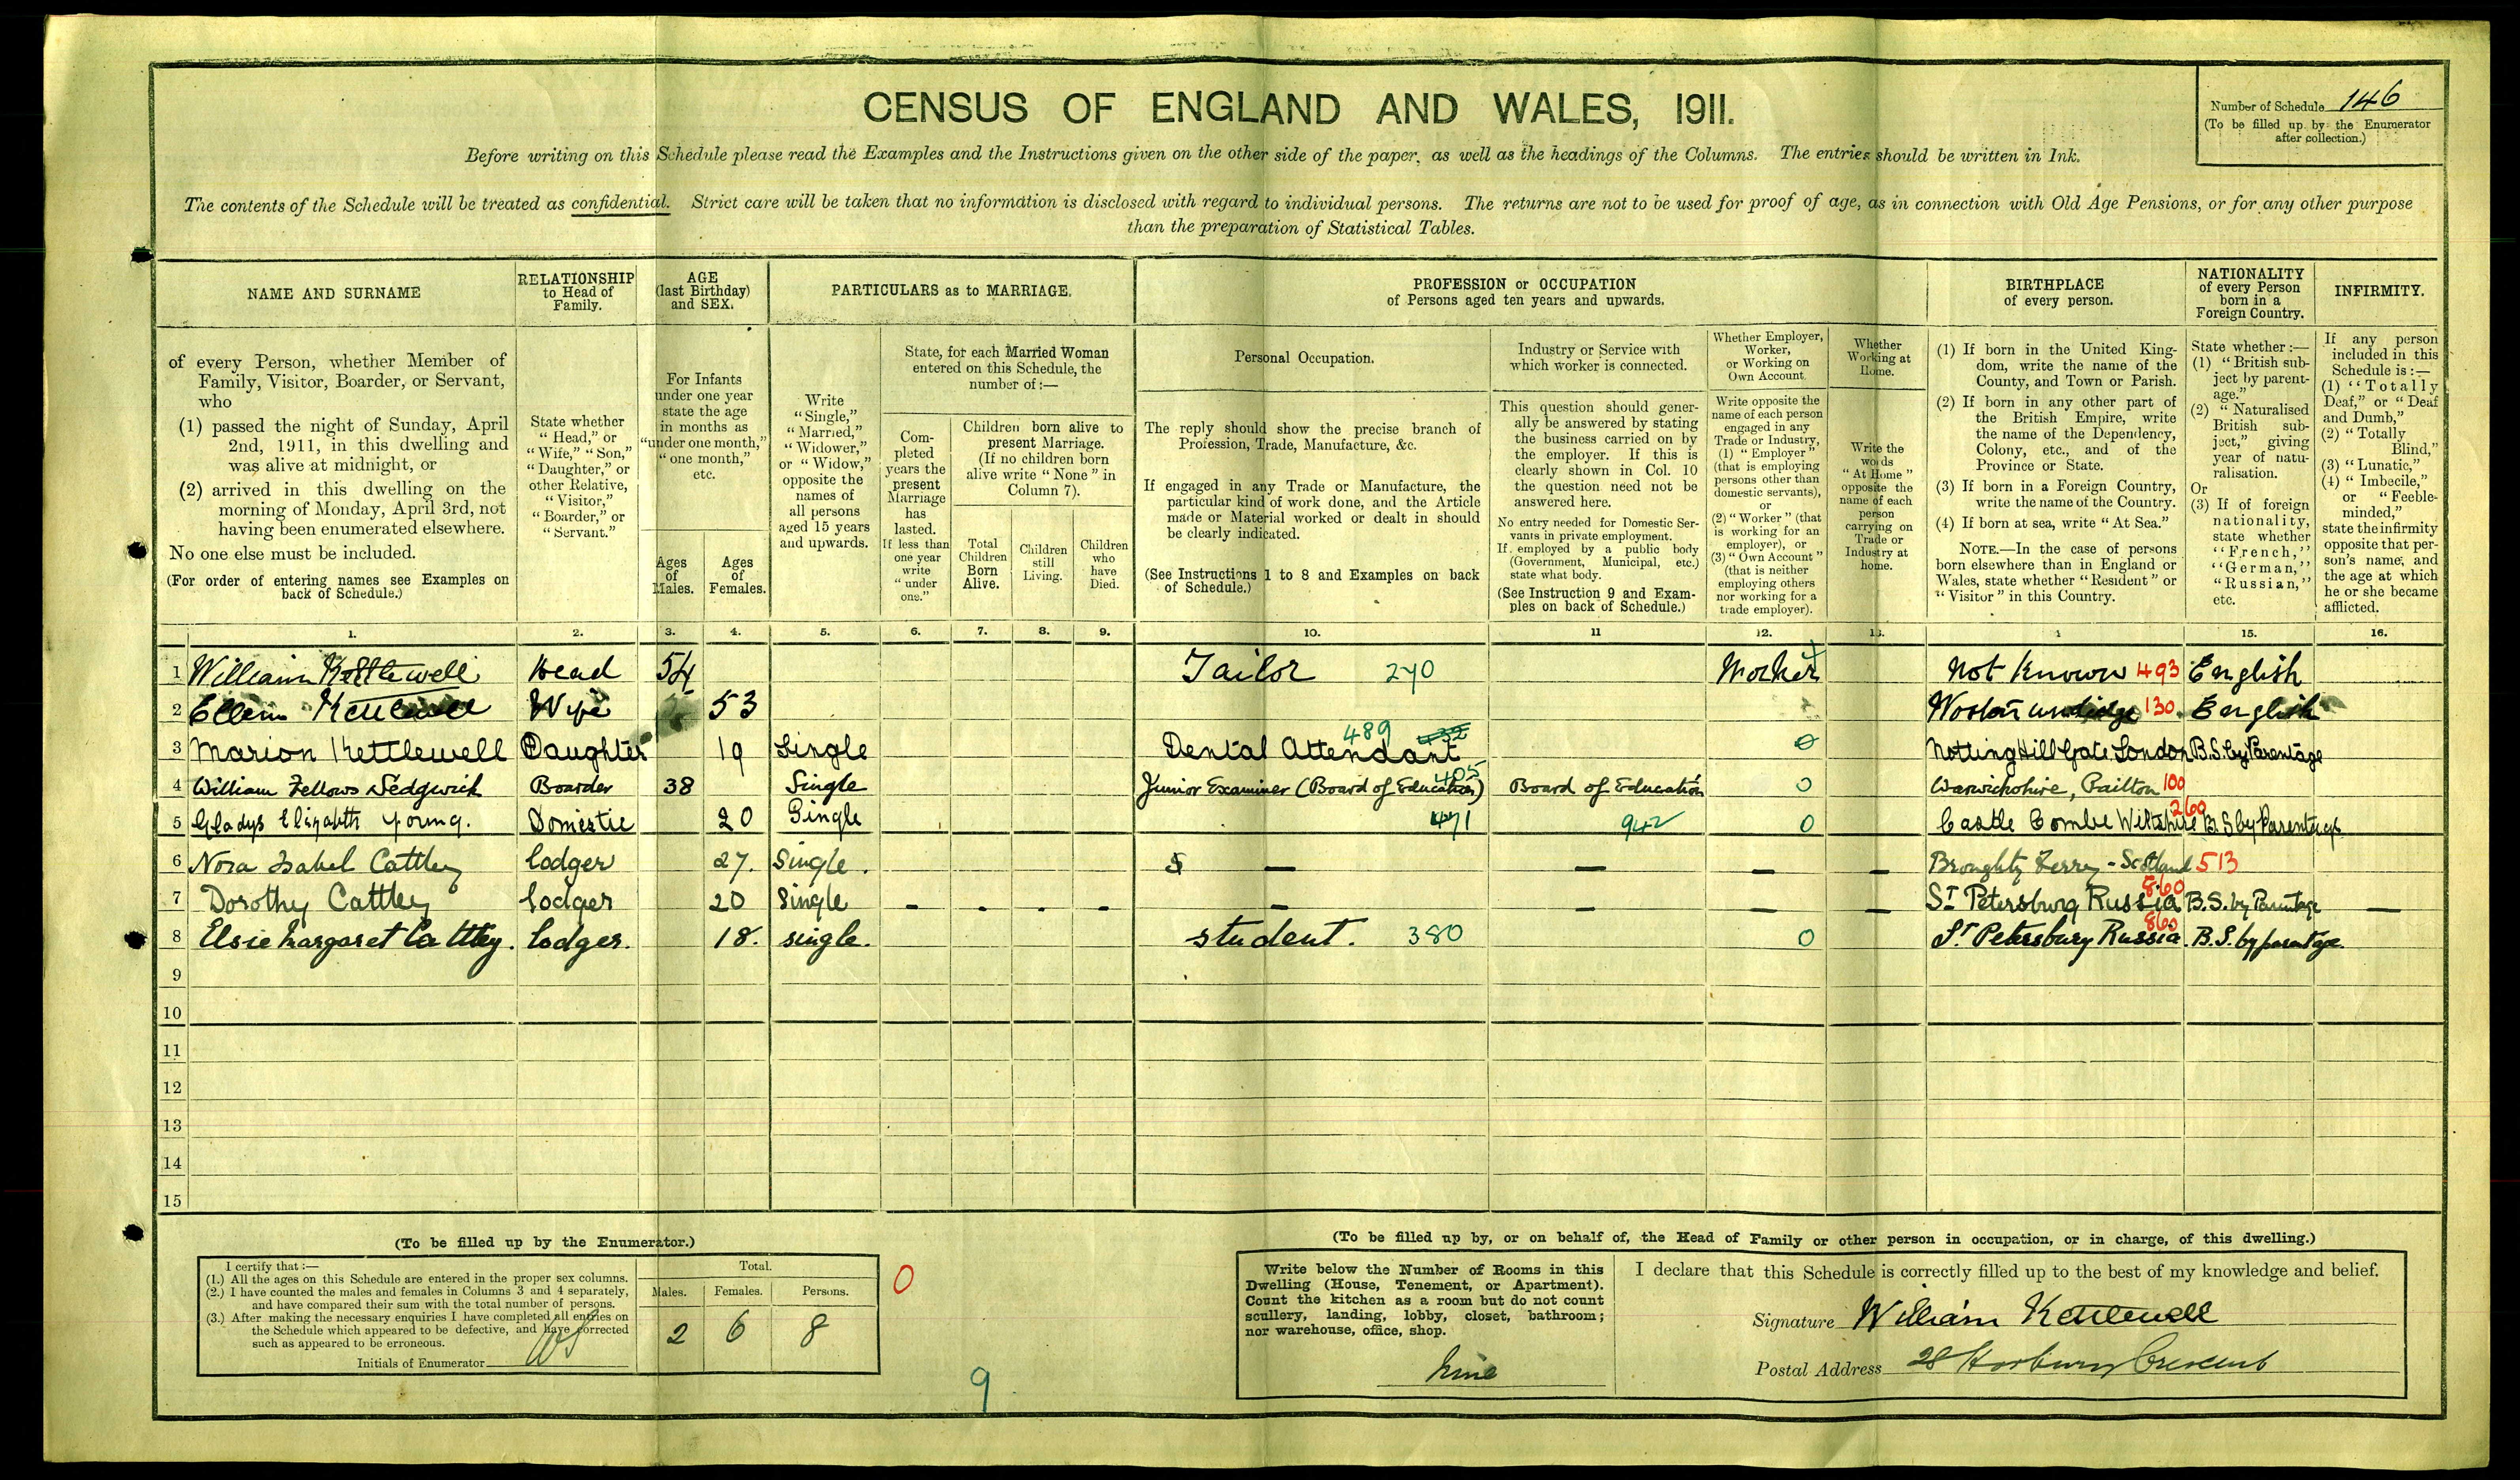 CENSUS OF ENGLAND AND WALES, 1911.
Number of Schedule 146
(To be filled up by the Enumerator
after collection.)
Before writing on this Schedule please read the Examples and the Instructions given on the other side of the paper, as well as the headings of the Columns. The entries should be written in Ink.
The contents of the Schedule will be treated as confidential. Strict care will be taken that no information is disclosed with regard to individual persons. The returns are not to be used for proof of age, as in connection with Old Age Pensions, or for any other purpose
than the preparation of Statistical Tables.
NAME AND SURNAME
of every Person, whether Member of
Family, Visitor, Boarder, or Servant,
who
(1) passed the night of Sunday, April
2nd, 1911, in this dwelling and
was alive at midnight, or
(2) arrived in this dwelling on the
morning of Monday, April 3rd, not
having been enumerated elsewhere.
No one else must be included.
(For order of entering names see Examples on
back of Schedule.)
RELATIONSHIP
to Head of
Family.
State whether
"Head," or
"Wife," "Son,"
"Daughter," or
other Relative,
"Visitor,"
"Boarder," or
"Servant."
AGE
(last Birthday)
and SEX.
For Infants
under one year
state the age
in months as
"under one month,"
"one month,"
etc.
Ages
of
Males.
Ages
of
Females.
PARTICULARS as to MARRIAGE.
Write
"Single,"
"Married,"
"Widower,"
or "Widow,"
opposite the
names of
all persons
aged 15 years
and upwards.
State, for each Married Woman
entered on this Schedule, the
number of:—
Com-
pleted
years the
present
Marriage
has
lasted.
If less than
one year
write
"under
one."
Children born alive to
present Marriage.
(If no children born
alive write "None" in
Column 7).
Total
Children
Born
Alive.
Children
still
Living.
Children
who
have
Died.
PROFESSION or OCCUPATION
of Persons aged ten years and upwards.
Personal Occupation.
The reply should show the precise branch of
Profession, Trade, Manufacture, &c.
If engaged in any Trade or Manufacture, the
particular kind of work done, and the Article
made or Material worked or dealt in should
be clearly indicated.
(See Instructions 1 to 8 and Examples on back
of Schedule.)
Industry or Service with
which worker is connected.
This question should gener-
ally be answered by stating
the business carried on by
the employer. If this is
clearly shown in Col. 10
the question need not be
answered here.
No entry needed for Domestic Ser-
vants in private employment.
If employed by a public body
(Government, Municipal, etc.)
state what body.
(See Instruction 9 and Exam-
ples on back of Schedule.)
Whether Employer,
Worker,
or Working on
Own Account.
Write opposite the
name of each person
engaged in any
Trade or Industry,
(1) "Employer"
(that is employing
persons other than
domestic servants),
or
(2) "Worker" (that
is working for an
employer), or
(3) "Own Account"
(that is neither
employing others
nor working for a
trade employer).
Whether
Working at
Home.
Write the
words
"At Home"
opposite the
name of each
person
carrying on
Trade or
Industry at
home.
BIRTHPLACE
of every person.
(1) If born in the United King-
dom, write the name of the
County, and Town or Parish.
(2) If born in any other part of
the British Empire, write
the name of the Dependency,
Colony, etc., and of the
Province or State.
(3) If born in a Foreign Country,
write the name of the Country.
(4) If born at sea, write "At Sea."
NOTE.—In the case of persons
born elsewhere than in England or
Wales, state whether "Resident" or
"Visitor" in this Country.
NATIONALITY
of every Person
born in a
Foreign Country.
State whether:—
(1) "British sub-
ject by parent-
age."
(2) "Naturalised
British sub-
ject," giving
year of natu-
ralisation.
Or
(3) If of foreign
nationality,
state whether
"French,"
"German,"
"Russian,"
etc.
INFIRMITY.
If any person
included in this
Schedule is:—
(1) "Totally
Deaf," or "Deaf
and Dumb,"
(2) "Totally
Blind,"
(3) "Lunatic,"
(4) "Imbecile,"
or "Feeble-
minded,"
state the infirmity
opposite that per-
son's name, and
the age at which
he or she became
afflicted.
1. 2. 3. 4. 5. 6. 7. 8. 9. 10. 11 12. 13. 1 15. 16.
1 William Kettlewell Head 54 Tailor 240 Worker Not Known 493 English
2 Ellen Kettlewell Wife 53 130 English
3 Marion Kettlewell Daughter 19 Single Dental Attendant 489 432 0 Notting Hill Gate London B.S. by Parentage
4 William Fellows Sedgwick Boarder 38 Single Junior Examiner (Board of Education) 405 Board of Education 0 Warwickshire, Pailton 100
5 Gladys Elizabeth Young. Domestic 20 Single 471 942 0 Castle Combe Wiltshire 260 B.S by Parentage
6 Nora Isabel Cattley lodger 27. Single. — — — — Broughty Ferry - Scotland 513
7 Dorothy Cattley lodger 20 Single - - - - — — — — St Petersburg Russia 860 B.S. by Parentage —
8 Elsie Margaret Cattley. lodger. 18. single. student. 380 0 St Petersburg Russia 860 B.S. by parentage.
9
10
11
12
13
14
15
(To be filled up by the Enumerator.)
I certify that:—
(1.) All the ages on this Schedule are entered in the proper sex columns.
(2.) I have counted the males and females in Columns 3 and 4 separately,
and have compared their sum with the total number of persons.
(3.) After making the necessary enquiries I have completed all entries on
the Schedule which appeared to be defective, and have corrected
such as appeared to be erroneous.
Initials of Enumerator
Total.
Males. Females. Persons.
2 6 8
0
9
(To be filled up by, or on behalf of, the Head of Family or other person in occupation, or in charge, of this dwelling.)
Write below the Number of Rooms in this
Dwelling (House, Tenement, or Apartment).
Count the kitchen as a room but do not count
scullery, landing, lobby, closet, bathroom;
nor warehouse, office, shop.
Nine
I declare that this Schedule is correctly filled up to the best of my knowledge and belief.
Signature William Kettlewell
Postal Address 28 Horbury Crescent